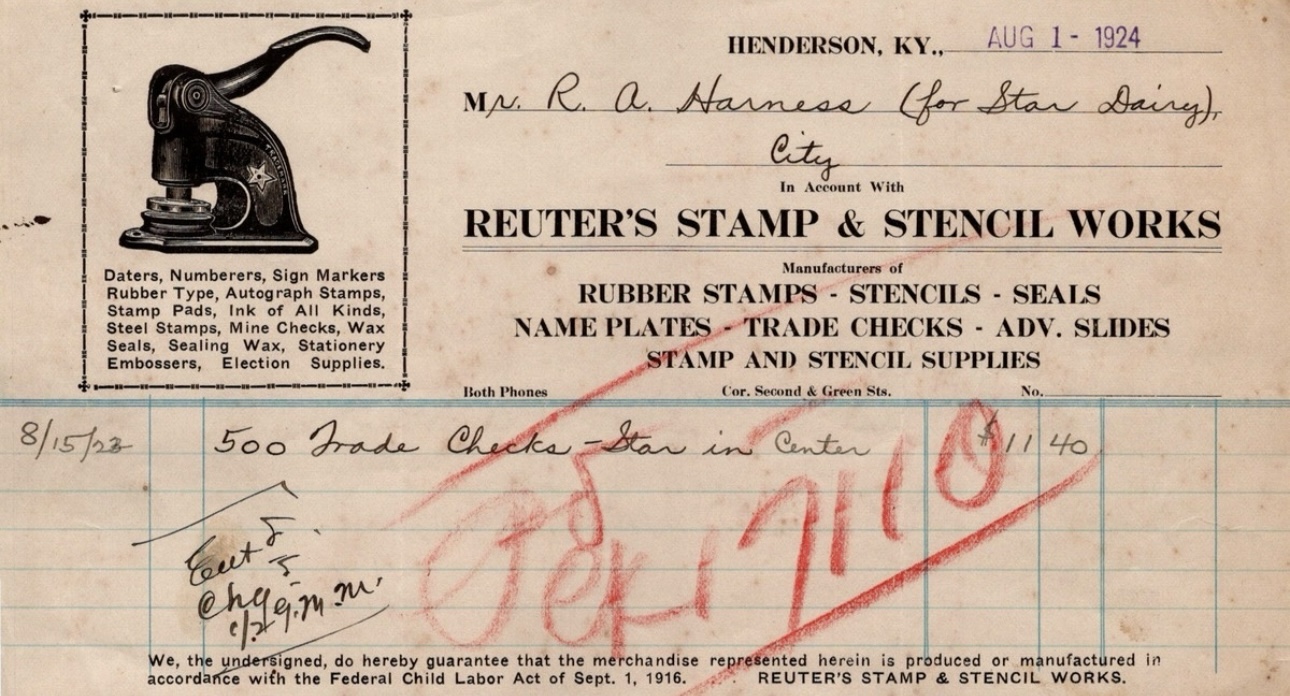 HENDERSON, KY., AUG 1 - 1924
Mr. R. A. Harness (for Star Dairy),
City
In Account With
REUTER'S STAMP & STENCIL WORKS
Manufacturers of
RUBBER STAMPS - STENCILS - SEALS
NAME PLATES - TRADE CHECKS - ADV. SLIDES
STAMP AND STENCIL SUPPLIES
Both Phones Cor. Second & Green Sts. No.
Daters, Numberers, Sign Markers
Rubber Type, Autograph Stamps,
Stamp Pads, Ink of All Kinds,
Steel Stamps, Mine Checks, Wax
Seals, Sealing Wax, Stationery
Embossers, Election Supplies.
8/15/23 500 Trade Checks - Star in Center $11 40
Pd
We, the undersigned, do hereby guarantee that the merchandise represented herein is produced or manufactured in
accordance with the Federal Child Labor Act of Sept. 1, 1916. REUTER'S STAMP & STENCIL WORKS.